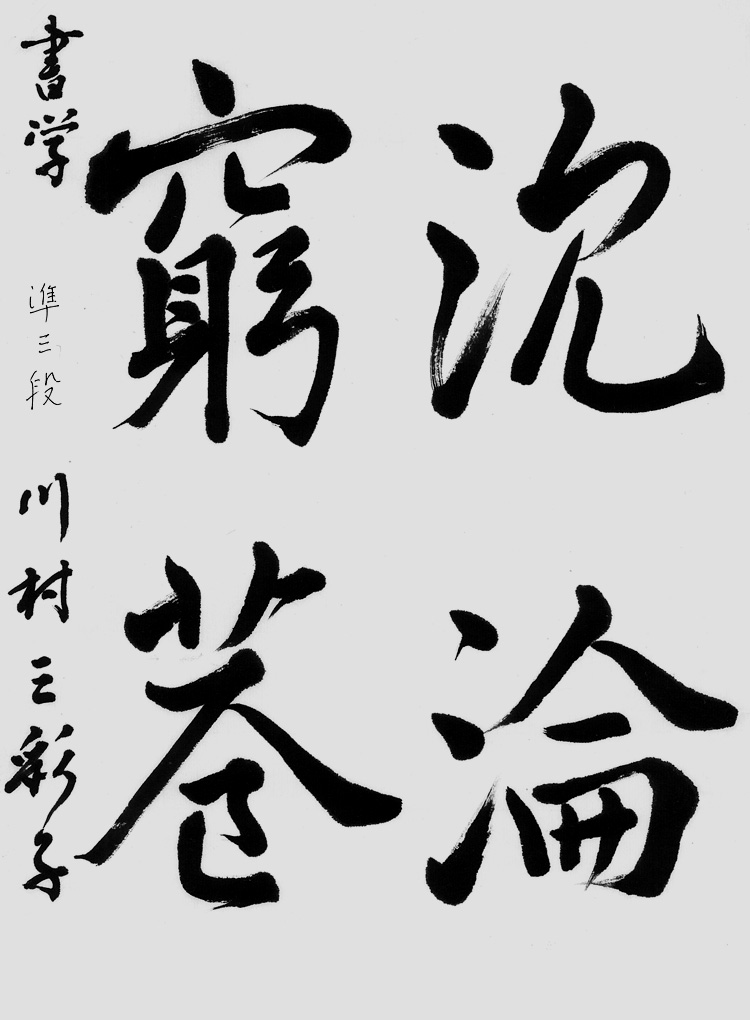 沈淪
窮蒼
書学 準三段 川村三彩子